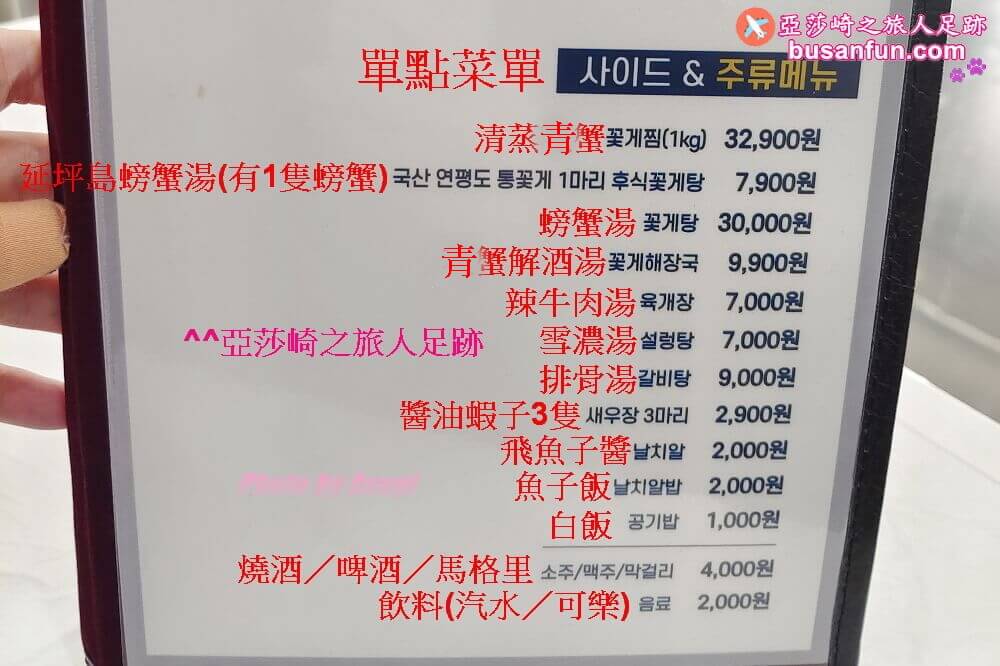 亞莎崎之旅人足跡
busanfun.com
單點菜單 사이드 & 주류메뉴
清蒸青蟹 꽃게찜(1kg) 32,900원
延坪島螃蟹湯(有1隻螃蟹) 국산 연평도 통꽃게 1마리 후식꽃게탕 7,900원
螃蟹湯 꽃게탕 30,000원
青蟹解酒湯 꽃게해장국 9,900원
辣牛肉湯 육개장 7,000원
^^亞莎崎之旅人足跡 雪濃湯 설렁탕 7,000원
排骨湯 갈비탕 9,000원
醬油蝦子3隻 새우장 3마리 2,900원
飛魚子醬 날치알 2,000원
魚子飯 날치알밥 2,000원
白飯 공기밥 1,000원
燒酒／啤酒／馬格里 소주/맥주/막걸리 4,000원
飲料(汽水／可樂) 음료 2,000원